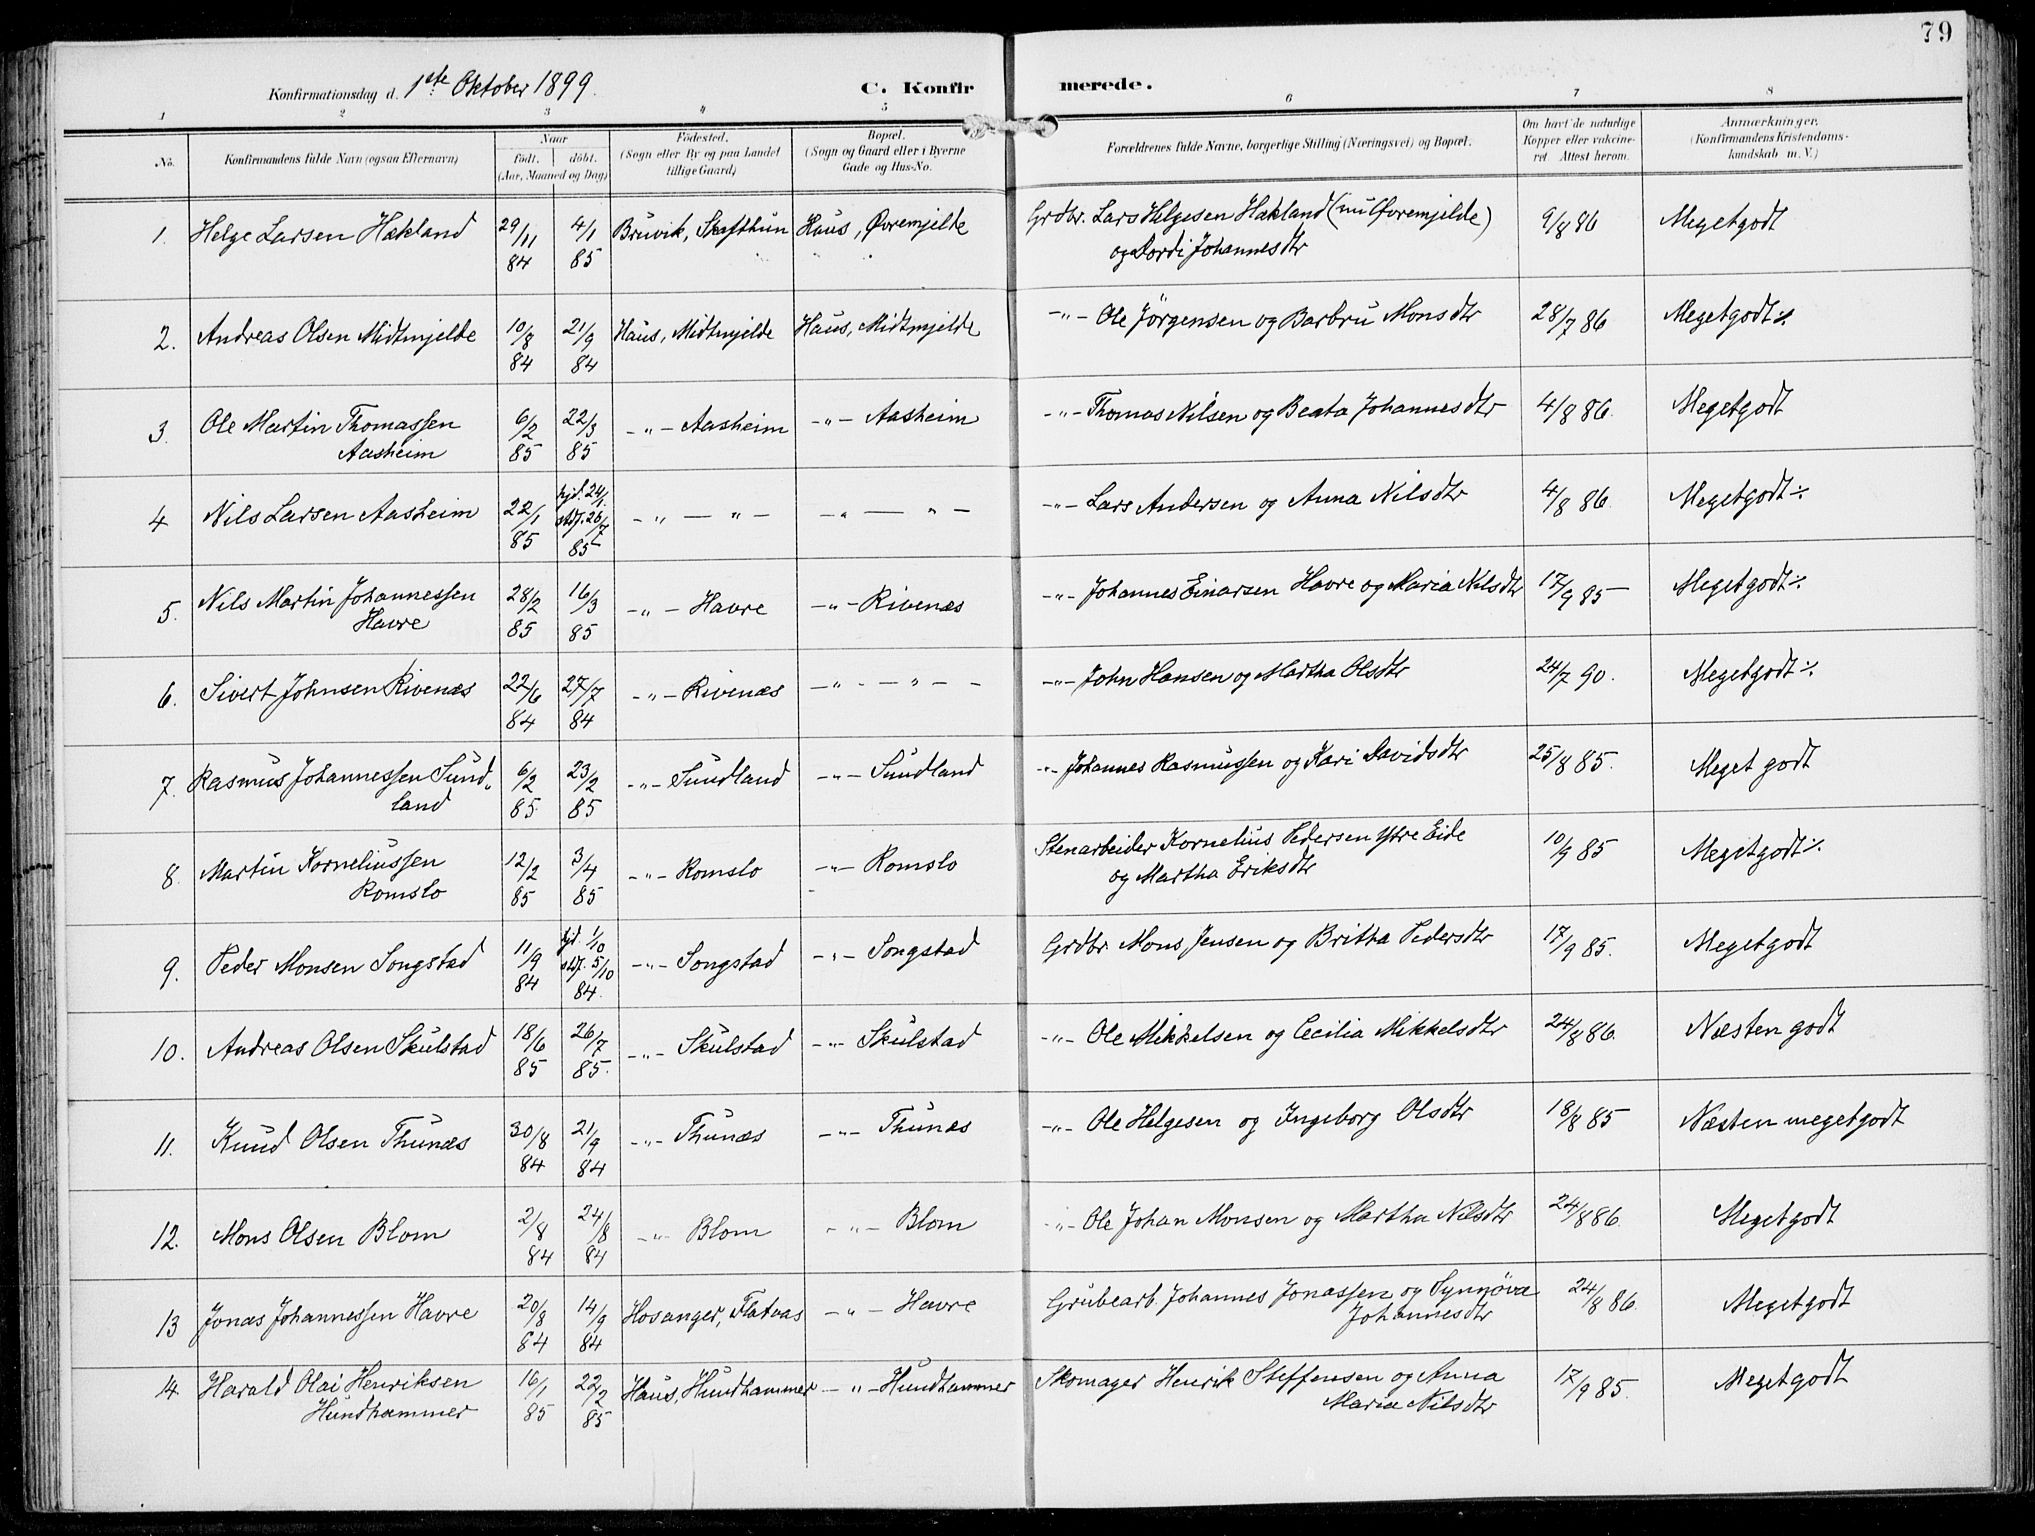 79
Konfirmationsdag d. 1ste Oktober 1899. C. Konfirmerede.
1 2 3 4 5 6 7 8
No. Konfirmandens fulde Navn (ogsaa Efternavn) Naar født. døbt. (Aar, Maaned og Dag) Fødested. (Sogn eller By og paa Landet tillige Gaard) Bopæl. (Sogn og Gaard eller i Byerne Gade og Hus-No. Forældrenes fulde Navne, borgerlige Stilling (Næringsvei) og Bopæl. Om havt de naturlige Kopper eller vakcineret. Attest herom. Anmærkninger. (Konfirmandens Kristendomskundskab m. V.)
1. Helge Larsen Hakland 29/11 84 4/1 85 Bruvik, Skafthun Haus, Øvremjelde Grdbr. Lars Helgesen Hakland (nu Øvremjelde) 9/8 86 Megetgodt
og Dordi Johannesdtr
2. Andreas Olsen Midtmjelde 10/8 84 21/9 84 Haus, Midtmjelde Haus, Midtmjelde -"- Ole Jörgensen og Barbru Monsdtr 28/7 86 Megetgodt ⁒
3. Ole Martin Thomassen 6/2 85 22/3 85 -"- Aasheim -"- Aasheim -"- Thomas Nilsen og Beata Johannesdtr 4/8 86. Megetgodt
Aasheim
4 Nils Larsen Aasheim 22/1 85 hjd. 24/1 stdf. 26/7 85 -"- -"- -"- -"- -"- Lars Andersen og Anna Nilsdtr 4/8 86. Megetgodt ⁒
5. Nils Martin Johannessen 28/2 85 16/3 85 -"- Havre -"- Rivenæs -"- Johannes Einarsen Havre og Maria Nilsdtr 17/9 85 Megetgodt ⁒
Havre
6. Sivert Johnsen Rivenæs 22/6 84 27/7 84 -"- Rivenæs -"- -"- -"- John Hansen og Martha Olsdtr 24/7 90. Megetgodt ⁒
7. Rasmus Johannessen Sund- 6/2 85 23/2 85 -"- Sundland -"- Sundland -"- Johannes Rasmussen og Kari Davidsdtr 25/8 85. Meget godt
land
8. Martin Korneliussen 12/2 85 3/4 85 -"- Romslo -"- Romslo Stenarbeider Kornelius Pedersen Ytre Eide 10/9 85 Megetgodt ⁒
Romslo og Martha Eriksdtr
9. Peder Monsen Songstad 11/9 84 hjd. 1/10 stdf. 5/10 84. -"- Songstad -"- Songstad Grdbr Mons Jensen og Britha Pedersdtr 17/9 85. Megetgodt
10. Andreas Olsen Skulstad 18/6 85 26/7 85. -"- Skulstad -"- Skulstad -"- Ole Mikkelsen og Cecilia Mikkelsdtr 24/8 86. Næsten godt
11. Knud Olsen Thunæs 30/8 84 21/9 84 -"- Thunæs -"- Thunæs -"- Ole Helgesen og Ingeborg Olsdtr 18/8 85 Næsten megetgodt
12. Mons Olsen Blom 2/8 84 24/8 84 -"- Blom -"- Blom -"- Ole Johan Monsen og Martha Nilsdtr 24/8 86. Megetgodt
13 Jonas Johannessen Havre 20/8 84 14/9 84 Hosanger, Flatvas -"- Havre Grubearb. Johannes Jonassen og Synnöva 24/8 86. Megetgodt
Johannesdtr
14. Harald Olai Henriksen 16/1 85 22/2 85 Haus, Hundhammer -"- Hundhammer Skomager Henrik Steffensen og Anna 17/9 85. Megetgodt
Hundhammer Maria Nilsdtr